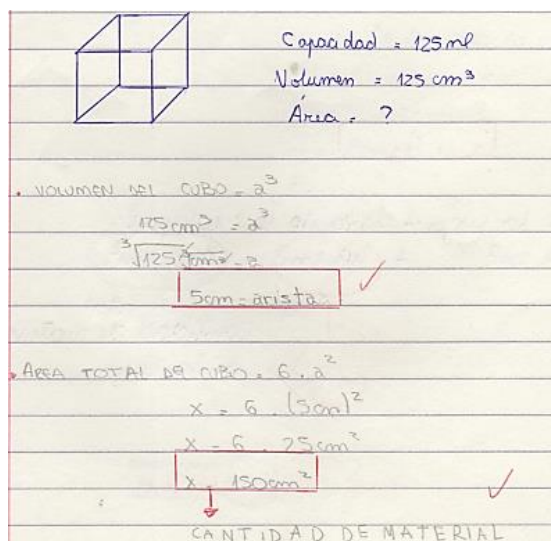 Capacidad = 125 ml
Volumen = 125 cm³
Área = ?
• VOLUMEN DEL CUBO = a³
125cm³ = a³
³√125 cm³ = a
5cm = arista
• AREA TOTAL DEL CUBO = 6 . a²
x = 6 . (5cm)²
x = 6 . 25cm²
x = 150cm²
CANTIDAD DE MATERIAL